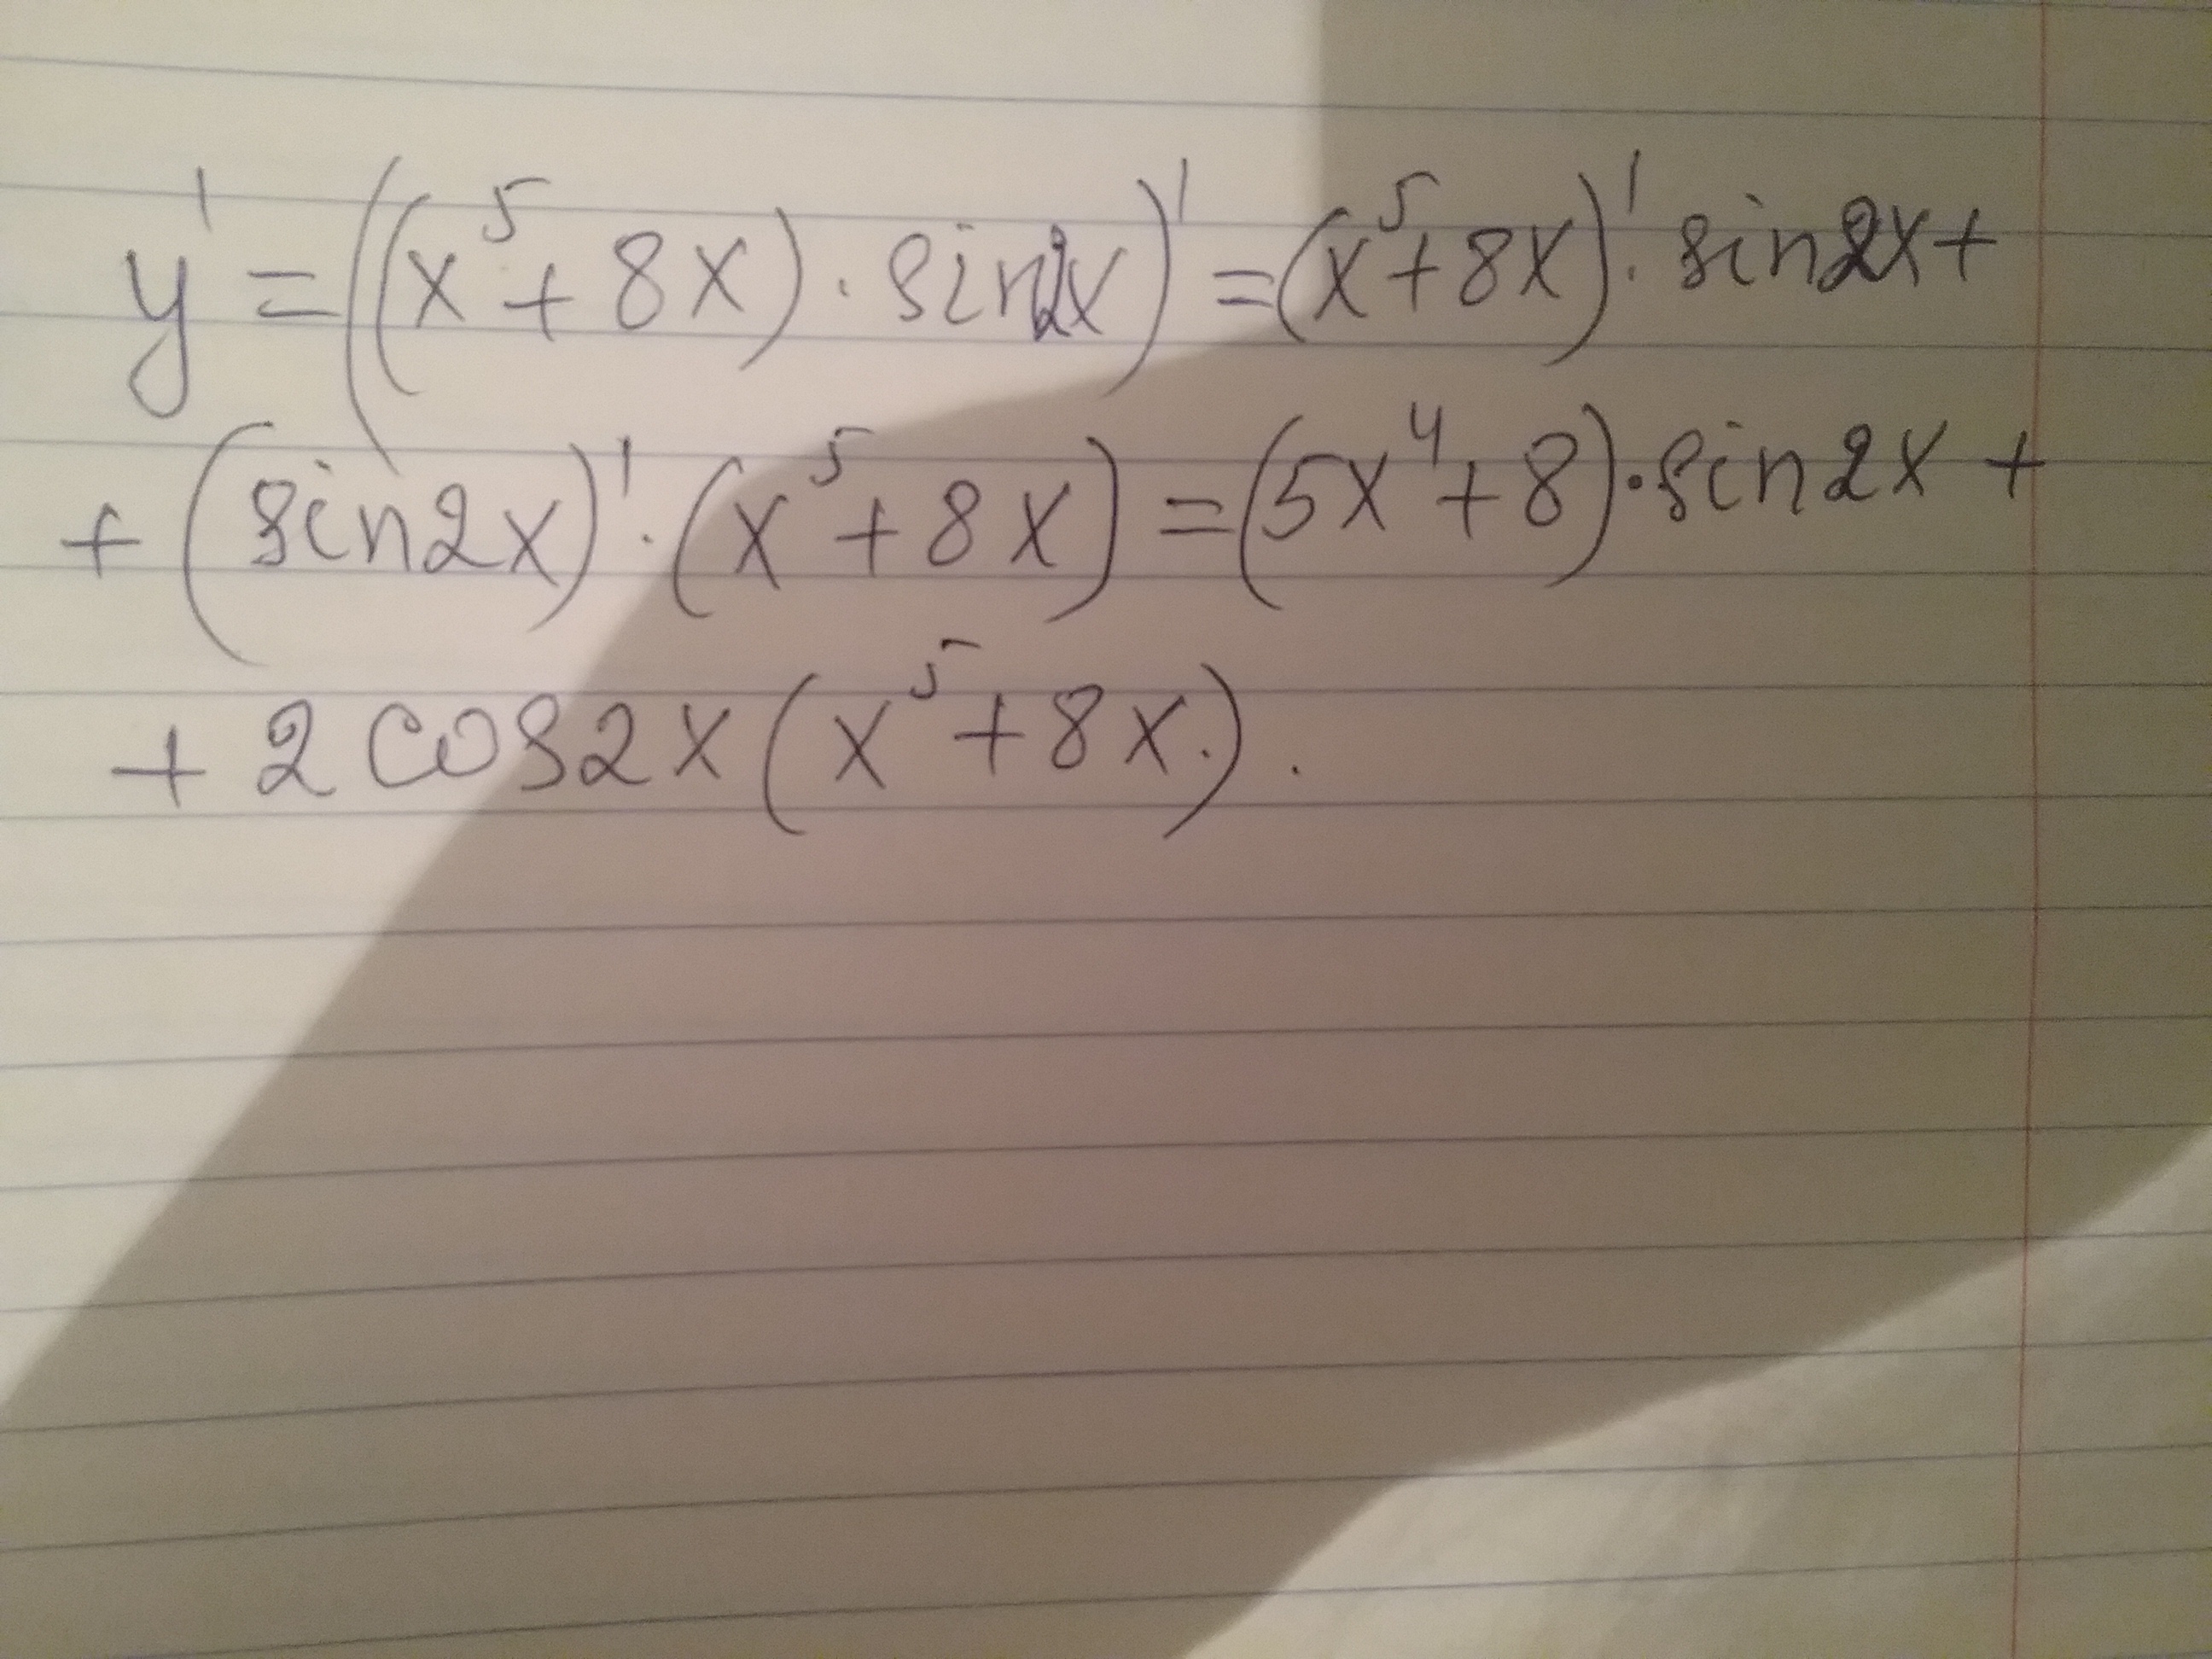 y' = ((x⁵ + 8x) · sin2x)' = (x⁵ + 8x)' · sin2x +
+ (sin2x)' · (x⁵ + 8x) = (5x⁴ + 8) · sin2x +
+ 2 cos2x (x⁵ + 8x.).